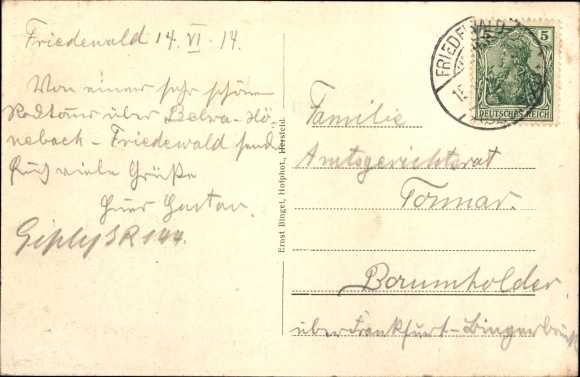 Friedewald 14. VI. 14.
Von einer sehr schönen
Radtour über Bebra-Hö-
nebach - Friedewald send
Euch viele Grüße
Euer Gustav.
Ernst Bingel, Hofphot., Hersfeld.
FRIEDEWALD
5 5
DEUTSCHES REICH
Familie
Amtsgerichtsrat
Baumholder
über Frankfurt-Bingerbrück